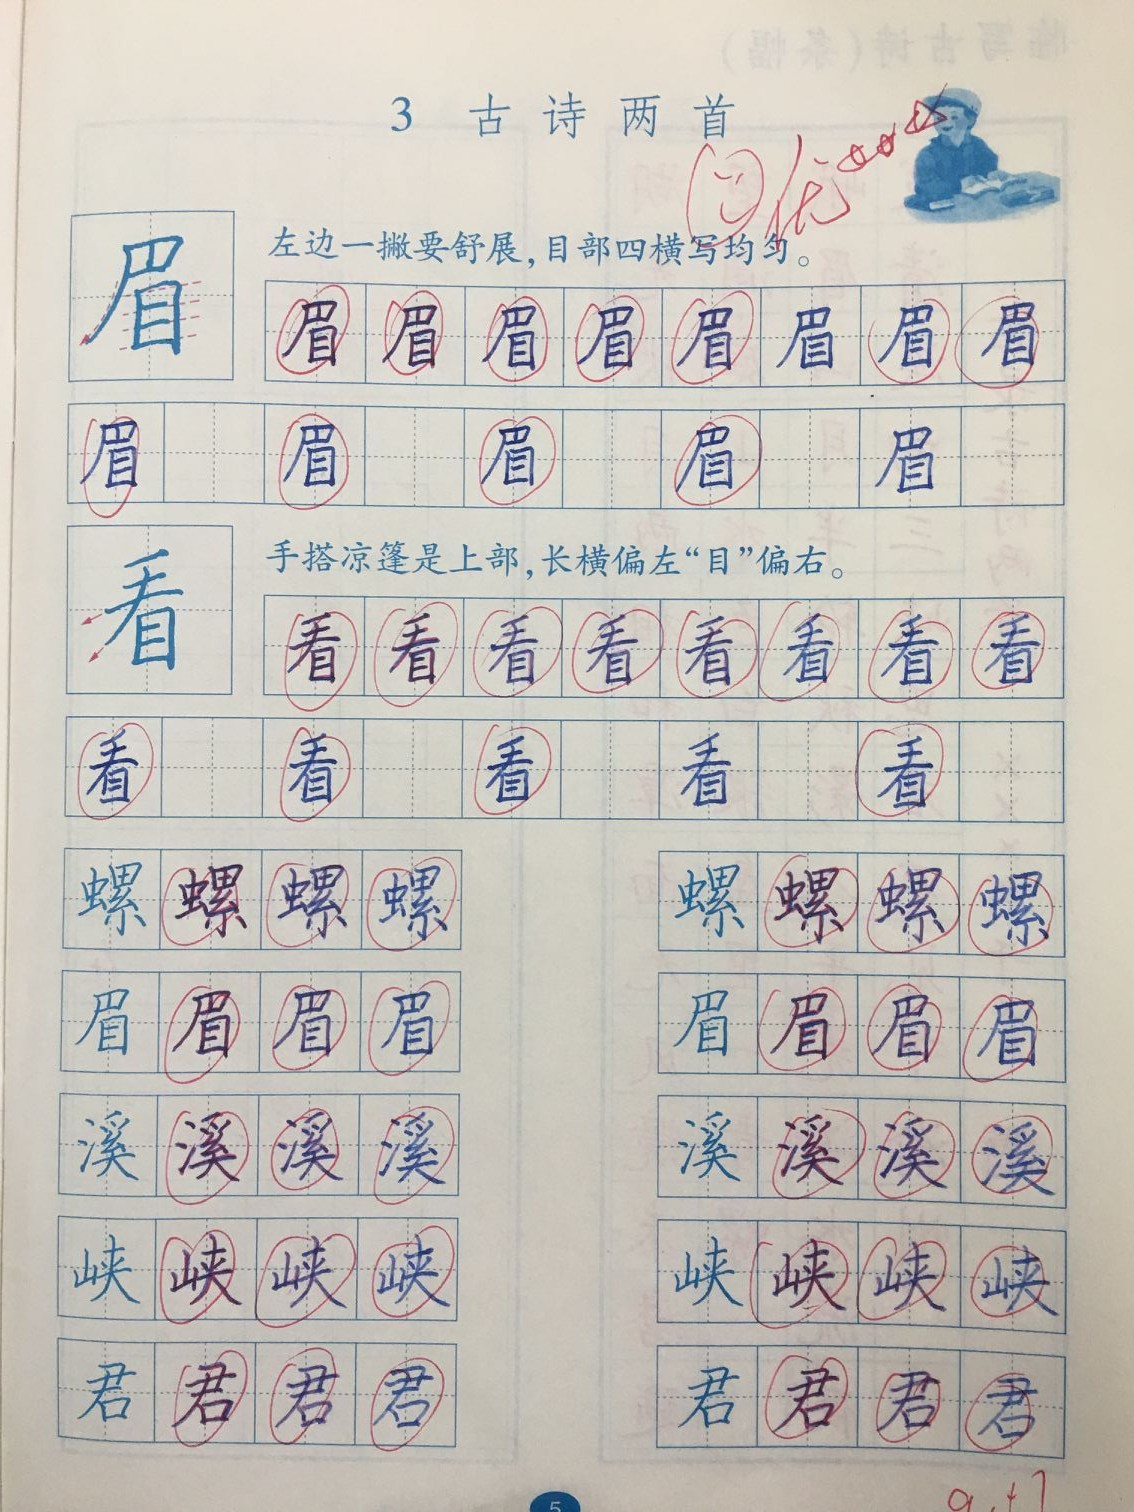 3 古诗两首
优
眉 左边一撇要舒展，目部四横写均匀。
眉 眉 眉 眉 眉 眉 眉 眉
眉 眉 眉 眉 眉
看 手搭凉篷是上部，长横偏左“目”偏右。
看 看 看 看 看 看 看 看
看 看 看 看 看
螺 螺 螺 螺 螺 螺 螺 螺
眉 眉 眉 眉 眉 眉 眉 眉
溪 溪 溪 溪 溪 溪 溪 溪
峡 峡 峡 峡 峡 峡 峡 峡
君 君 君 君 君 君 君 君
5